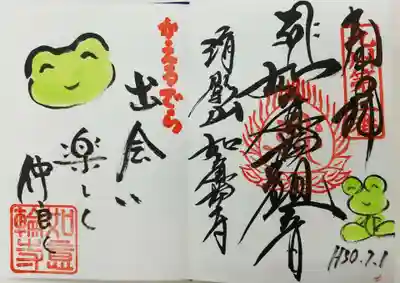 如意輪観音
清影山 如意輪寺
H30.7.1
かえるでら
出会い
楽しく
仲良く
如意輪寺